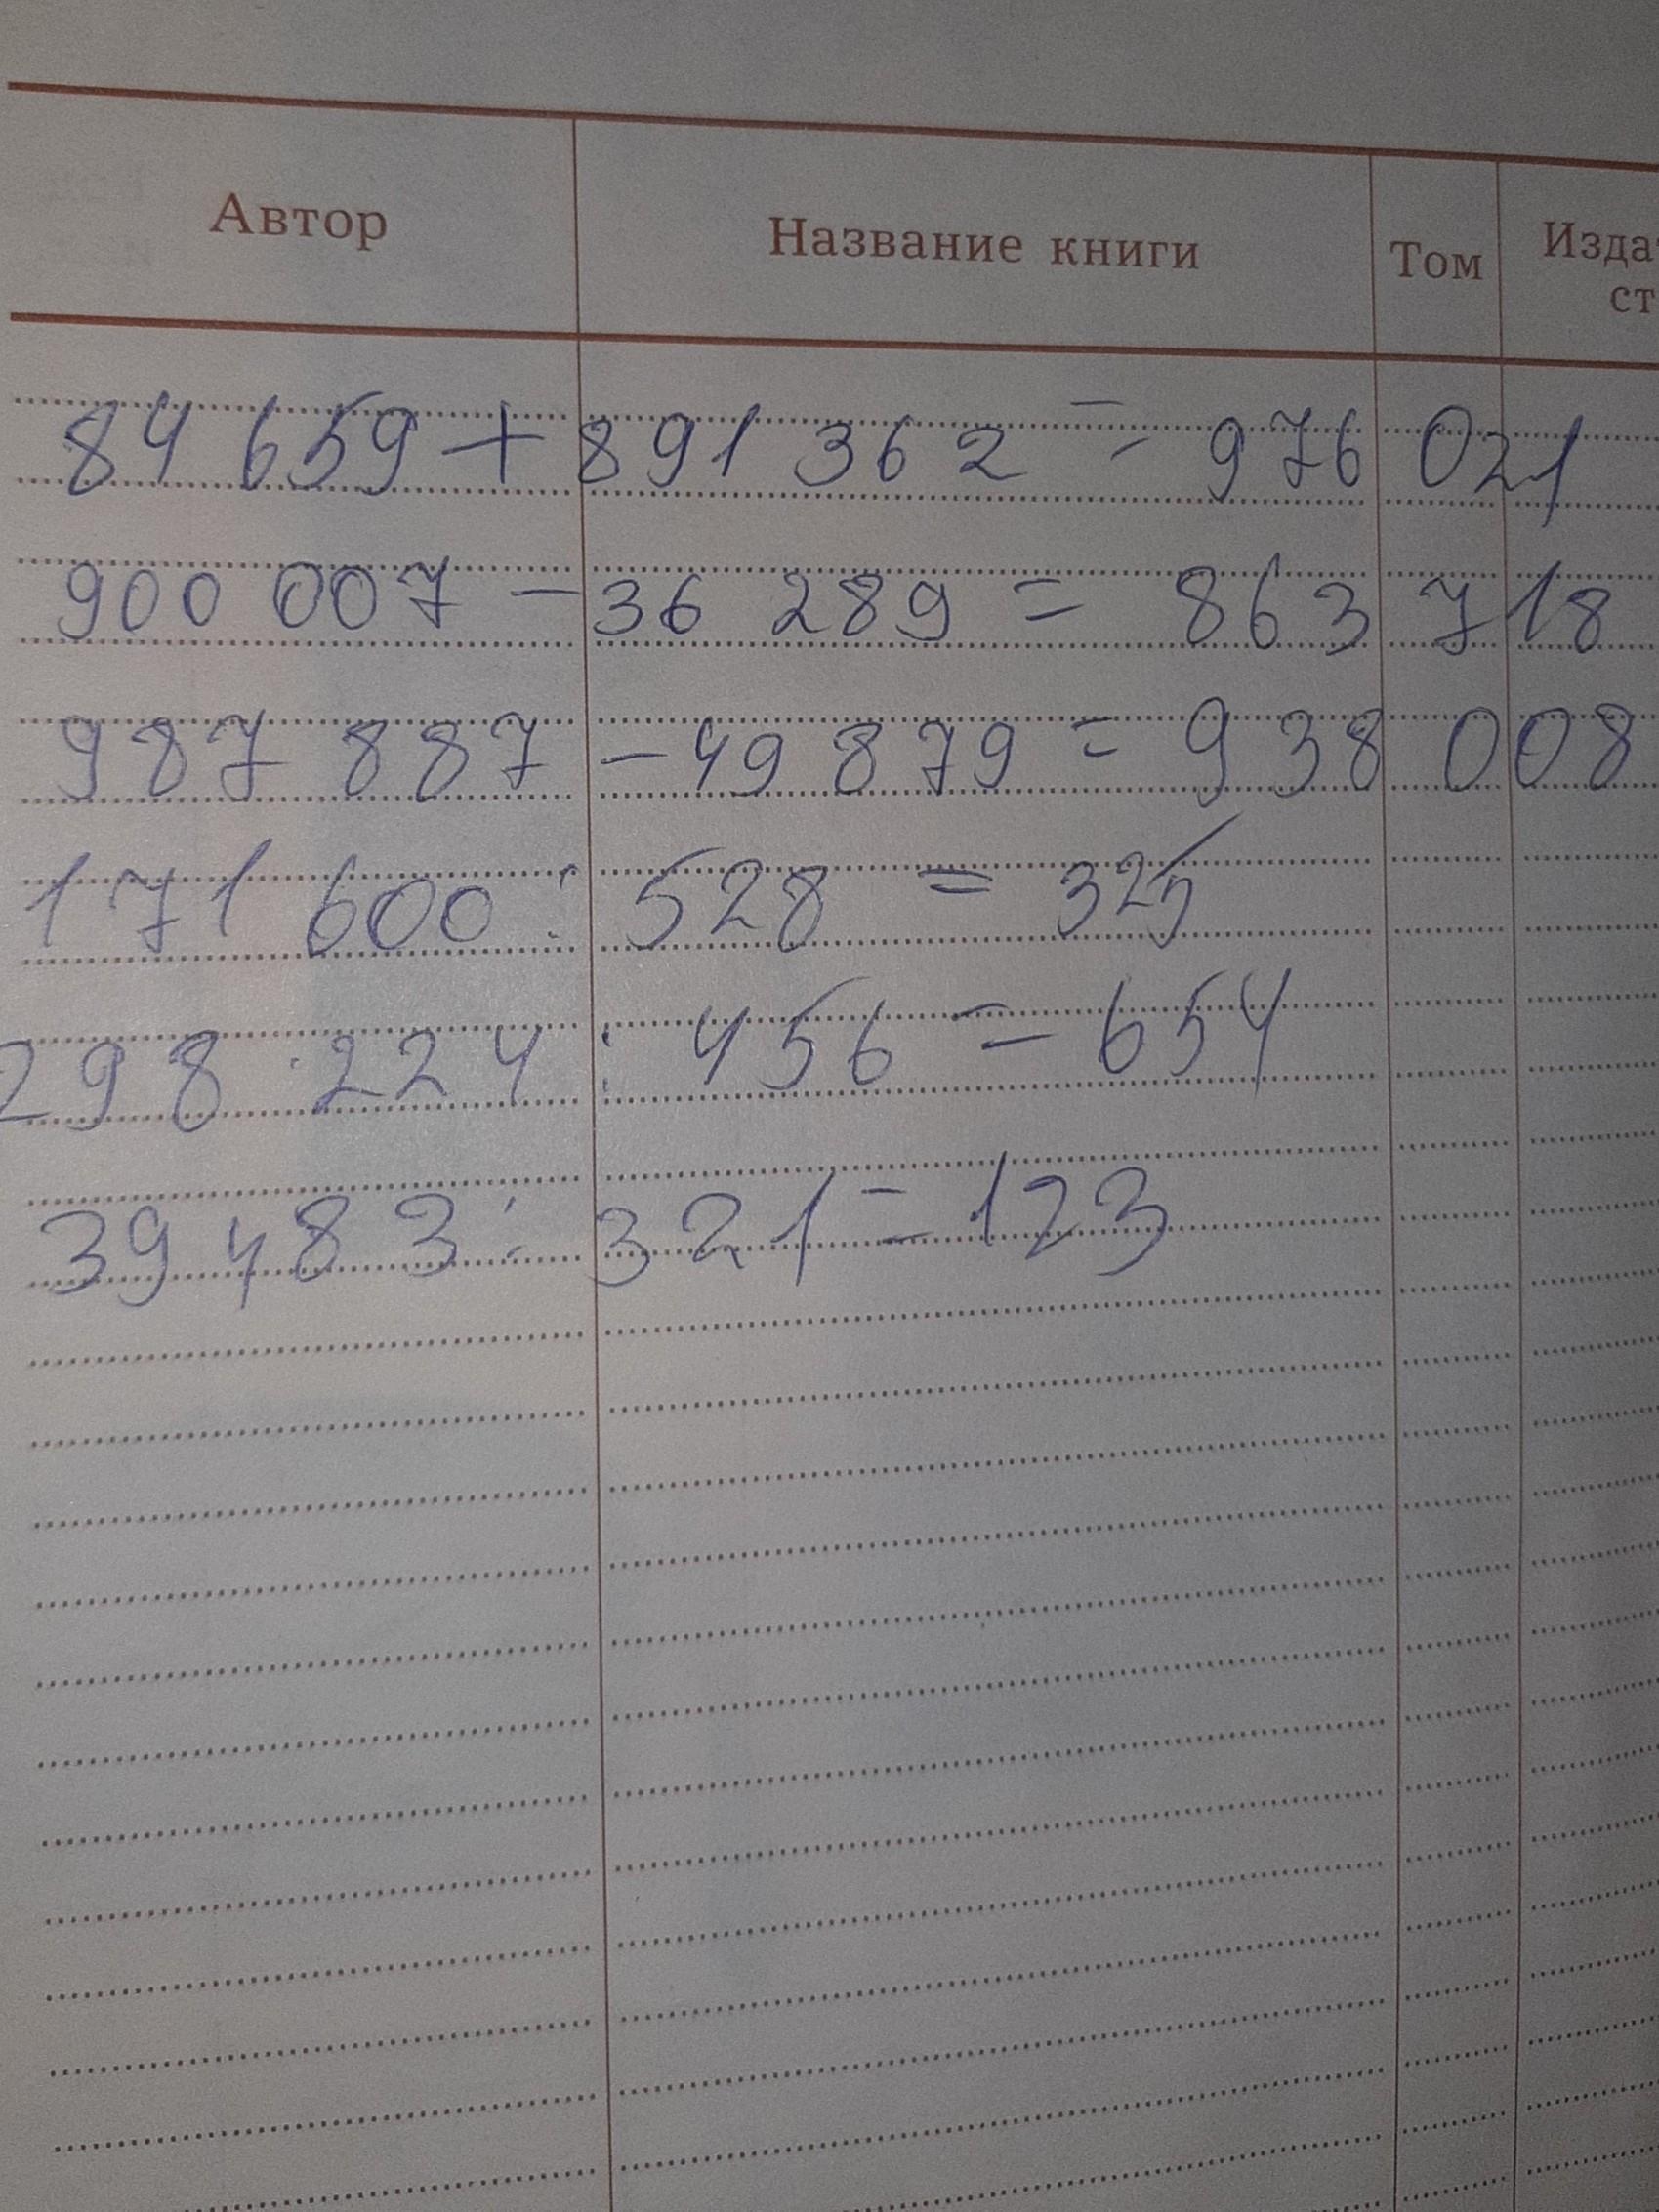 Автор Название книги Том Изда
ст
84 659 + 891 362 = 976 021
900 007 - 36 289 = 863 718
987 887 - 49 879 = 938 008
171 600 : 528 = 325
298 224 : 456 = 654
39 483 : 321 = 123